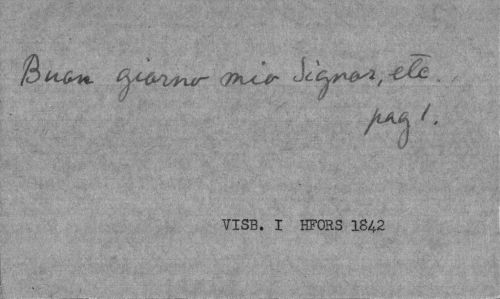 Buon giorno mio Signor, etc.
pag 1.
VISB. I HFORS 1842